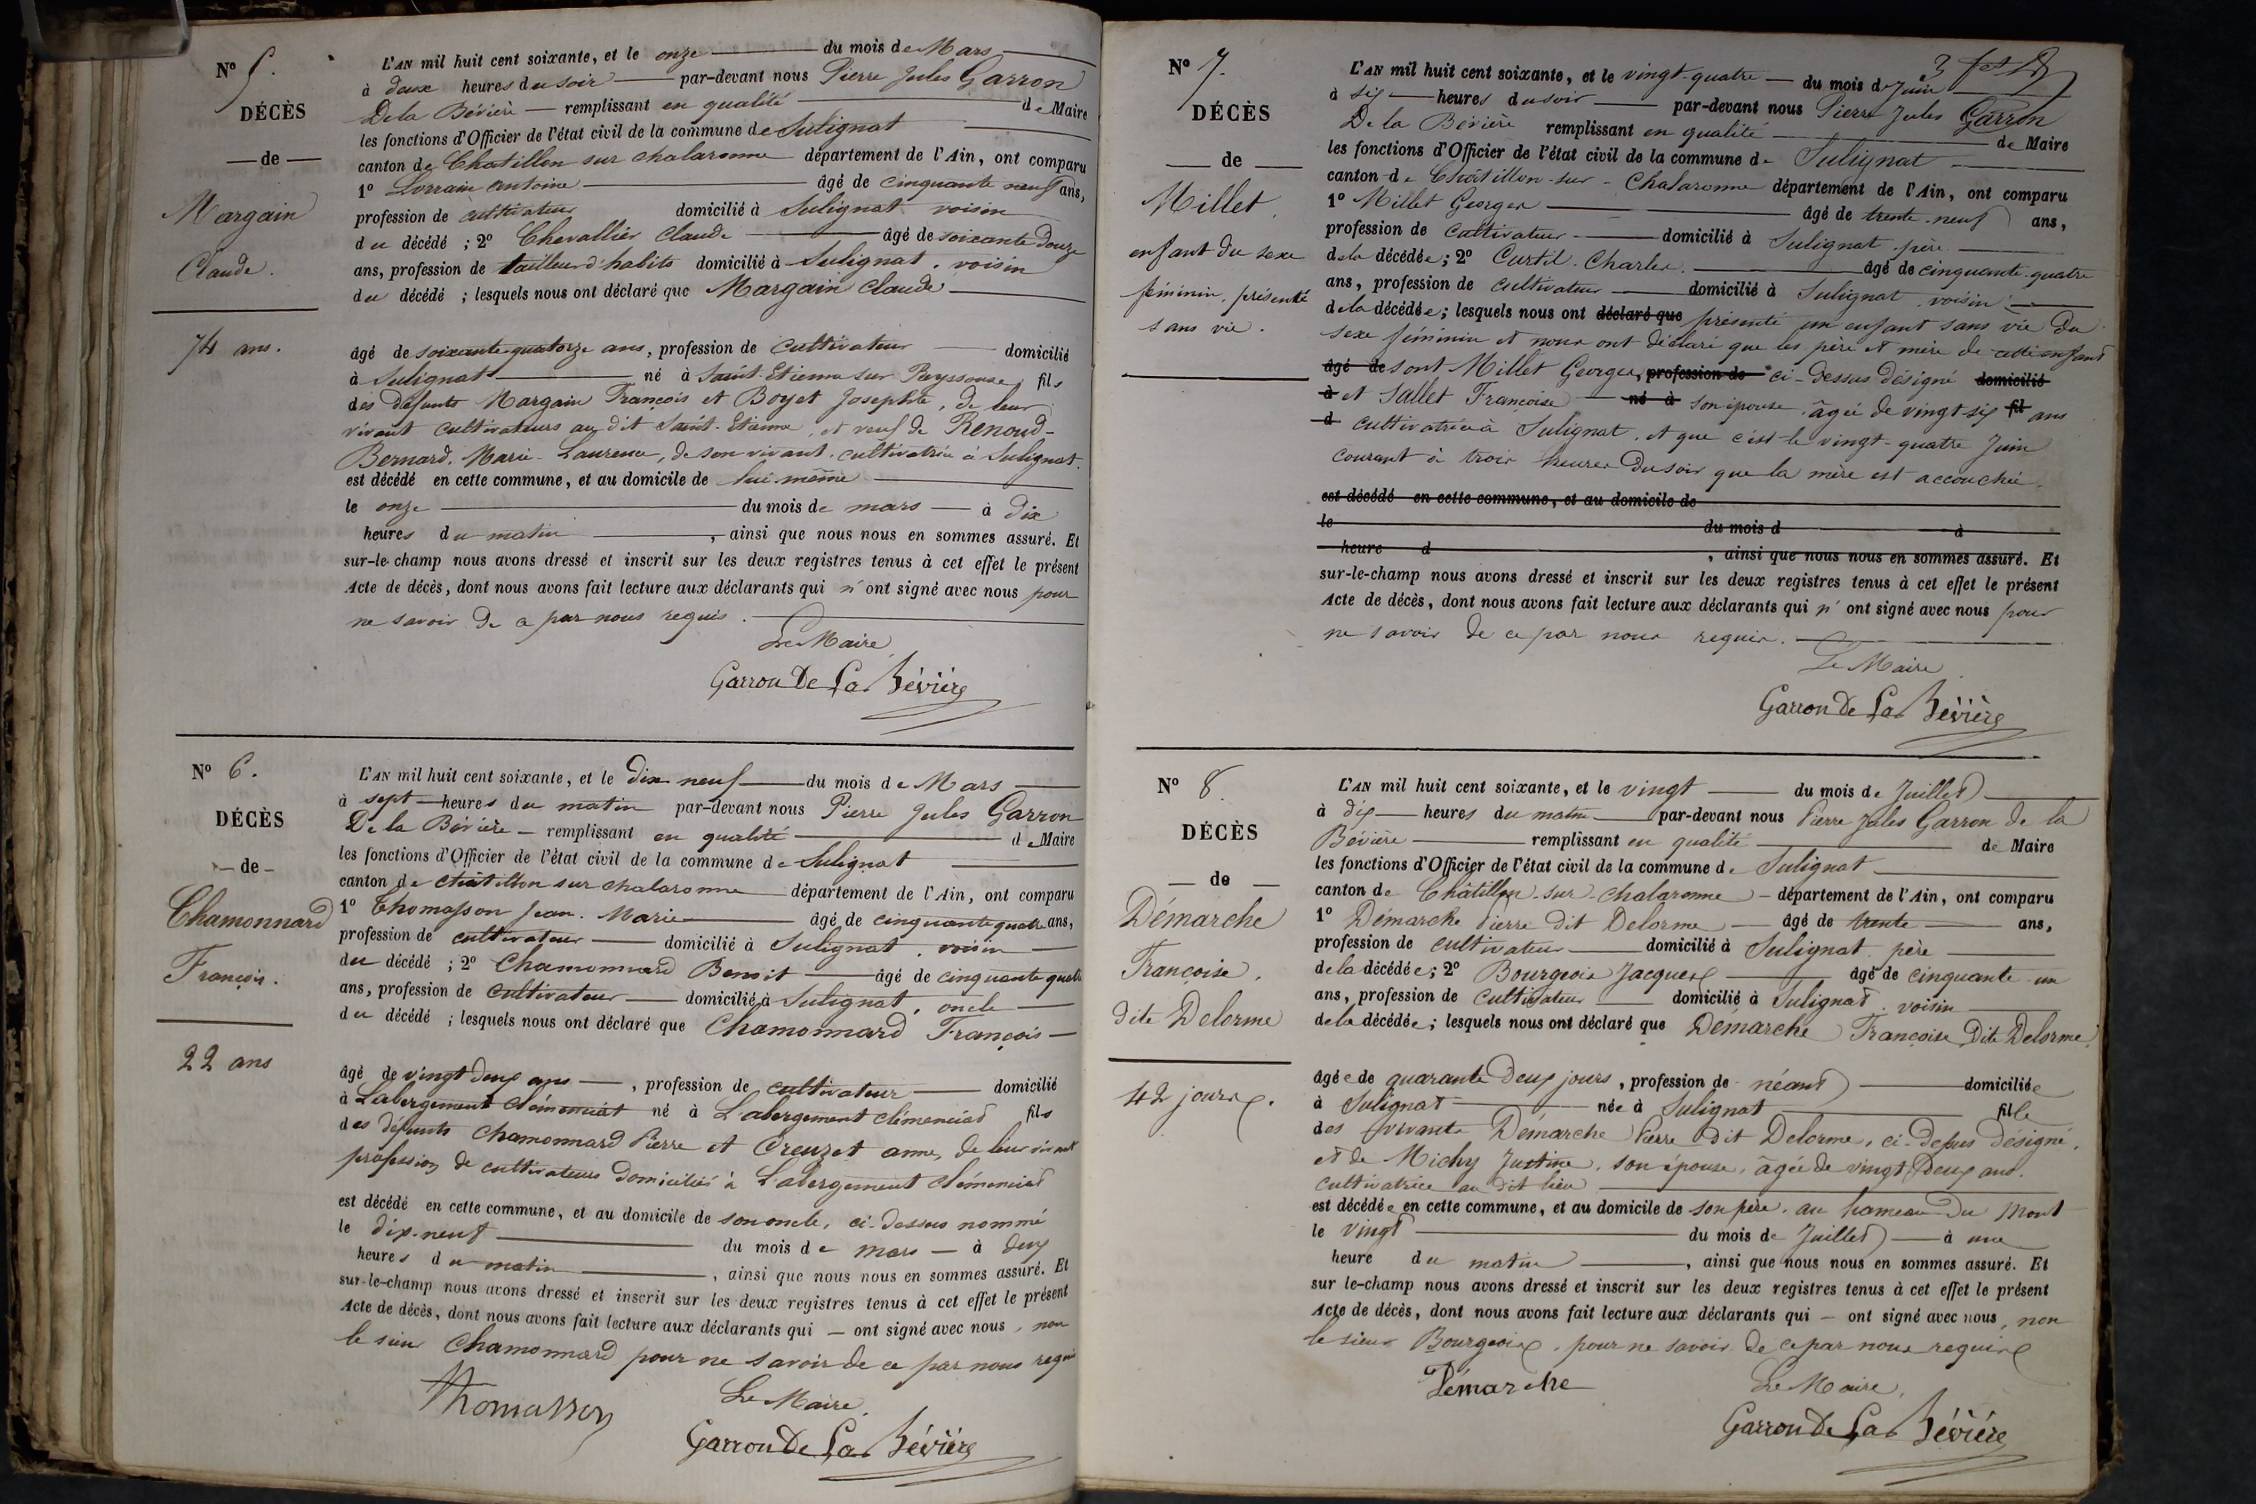 N° 5.
DÉCÈS
— de —
Margain
Claude.
74 ans.
L'AN mil huit cent soixante, et le onze du mois de Mars
à deux heures du soir par-devant nous Pierre Jules Garron
De la Bévière remplissant en qualité de Maire
les fonctions d'Officier de l'état civil de la commune de Sulignat
canton de Chatillon sur chalaronne département de l'Ain, ont comparu
1° Lorrain Antoine âgé de cinquante neuf ans,
profession de cultivateur domicilié à Sulignat voisin
du décédé ; 2° Chevallier Claude âgé de soixante douze
ans, profession de tailleur d'habits domicilié à Sulignat, voisin
du décédé ; lesquels nous ont déclaré que Margain Claude
âgé de soixante quatorze ans, profession de cultivateur domicilié
à Sulignat né à Saint-Etienne sur Reyssouse, fils
des défunts Margain François et Boyet Josephte, de leur
vivant cultivateurs au dit Saint-Etienne, et veuf de Renoud-
Bernard, Marie-Laurence, de son vivant, cultivatrice à Sulignat.
est décédé en cette commune, et au domicile de lui-même
le onze du mois de mars à dix
heures du matin, ainsi que nous nous en sommes assuré. Et
sur-le-champ nous avons dressé et inscrit sur les deux registres tenus à cet effet le présent
Acte de décès, dont nous avons fait lecture aux déclarants qui n'ont signé avec nous pour
ne savoir de ce par nous requis.
Le Maire
Garron De La Bévière
N° 6.
DÉCÈS
— de —
Chamonnard
François.
22 ans
L'AN mil huit cent soixante, et le dix neuf du mois de Mars
à sept heures du matin par-devant nous Pierre Jules Garron
De la Bévière remplissant en qualité de Maire
les fonctions d'Officier de l'état civil de la commune de Sulignat
canton de Châtillon sur chalaronne département de l'Ain, ont comparu
1° Thomasson Jean-Marie âgé de cinquante quatre ans,
profession de cultivateur domicilié à Sulignat, voisin
du décédé ; 2° Chamonnard Benoit âgé de cinquante quatre
ans, profession de cultivateur domicilié à Sulignat, oncle
du décédé ; lesquels nous ont déclaré que Chamonnard François
âgé de vingt deux ans, profession de cultivateur domicilié
à L'abergement clémenciat né à L'abergement clémenciat fils
des défunts Chamonnard Pierre et Creuzet anne, de leur vivant
profession de cultivateurs domiciliés à L'abergement clémenciat
est décédé en cette commune, et au domicile de son oncle, ci-dessus nommé
le dix-neuf du mois de mars à deux
heures du matin, ainsi que nous nous en sommes assuré. Et
sur-le-champ nous avons dressé et inscrit sur les deux registres tenus à cet effet le présent
Acte de décès, dont nous avons fait lecture aux déclarants qui — ont signé avec nous, non
le sieur Chamonnard pour ne savoir de ce par nous requis
Thomasson
Le Maire,
Garron De La Bévière
N° 7.
DÉCÈS
— de —
Millet,
enfant du sexe
féminin, présenté
sans vie.
L'AN mil huit cent soixante, et le vingt-quatre du mois de Juin
à six heures du soir par-devant nous Pierre Jules Garron
De la Bévière remplissant en qualité de Maire
les fonctions d'Officier de l'état civil de la commune de Sulignat
canton de Châtillon-sur-Chalaronne département de l'Ain, ont comparu
1° Millet Georges âgé de trente-neuf ans,
profession de cultivateur domicilié à Sulignat père
de la décédée ; 2° Curtil Charles âgé de cinquante-quatre
ans, profession de cultivateur domicilié à Sulignat voisin
de la décédée ; lesquels nous ont déclaré que présenté un enfant sans vie du
sexe féminin et nous ont déclaré que les père et mère de cette enfant
âgé de sont Millet Georges, profession de ci-dessus désigné domicilié
à et Sallet Françoise né à son épouse, âgée de vingt six fil ans
d cultivatrice à Sulignat, et que c'est le vingt-quatre Juin
courant à trois heures du soir que la mère est accouchée.
est décédé en cette commune, et au domicile de
le du mois d à
heure d, ainsi que nous nous en sommes assuré. Et
sur-le-champ nous avons dressé et inscrit sur les deux registres tenus à cet effet le présent
Acte de décès, dont nous avons fait lecture aux déclarants qui n'ont signé avec nous pour
ne savoir de ce par nous requis.
Le Maire
Garron De La Bévière
N° 8.
DÉCÈS
— de —
Démarche
Françoise,
dite Delorme
42 jours.
L'AN mil huit cent soixante, et le vingt du mois de Juillet
à dix heures du matin par-devant nous Pierre Jules Garron de la
Bévière remplissant en qualité de Maire
les fonctions d'Officier de l'état civil de la commune de Sulignat
canton de Châtillon-sur-chalaronne département de l'Ain, ont comparu
1° Démarche Pierre dit Delorme âgé de trente ans,
profession de cultivateur domicilié à Sulignat père
de la décédée ; 2° Bourgeois Jacques âgé de cinquante-un
ans, profession de cultivateur domicilié à Sulignat, voisin
de la décédée ; lesquels nous ont déclaré que Démarche Françoise dite Delorme
âgée de quarante deux jours, profession de néant domiciliée
à Sulignat née à Sulignat fille
des vivants Démarche Pierre dit Delorme, ci-dessus désigné,
et de Michy Justine, son épouse, âgée de vingt deux ans,
cultivatrice au dit lieu
est décédée en cette commune, et au domicile de son père, au hameau du Mont
le vingt du mois de Juillet à une
heure du matin, ainsi que nous nous en sommes assuré. Et
sur le-champ nous avons dressé et inscrit sur les deux registres tenus à cet effet le présent
Acte de décès, dont nous avons fait lecture aux déclarants qui — ont signé avec nous, non
le sieur Bourgeois, pour ne savoir de ce par nous requis
Démarche
Le Maire,
Garron De La Bévière